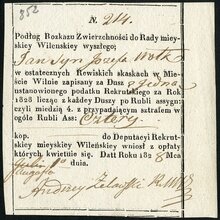 852
N. 244.
Podług Rozkazu Zwierzchności do Rady miey-
skiey Wileńskiey wyszłego;
Jan Syn Józefa
w ostatecznych Rewiskich skaskach w Mie-
ście Wilnie zapisany za Duszę Jedną
ustanowionego podatku Rekrutskiego za Rok
1828 licząc z każdey Duszy po Rubli assygn:
czyli miedzią 4. z przypadaiącym sztrafem w
ogóle Rubli Ass: Cztery
kop. do Deputacyi Rekrut-
skiey mieyskiey Wileńskiey wniosł z opłaty
których kwituie się. Datt Roku 1828 Mca
dnia
Andrzey